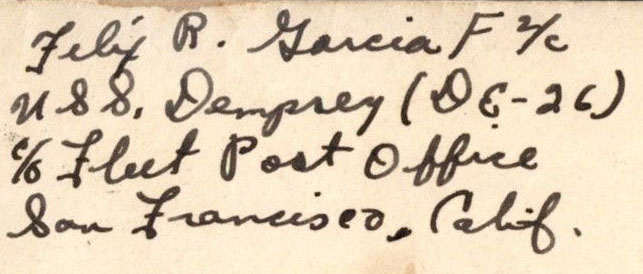 Felix R. Garcia F 2/c
USS. Dempsey (DE-26)
c/o Fleet Post Office
San Francisco, Calif.